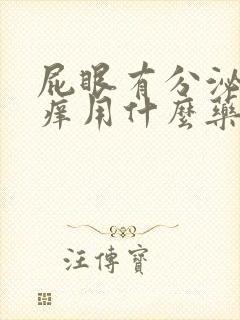 屁眼有分泌
痒用什麼藥
汪傳寶